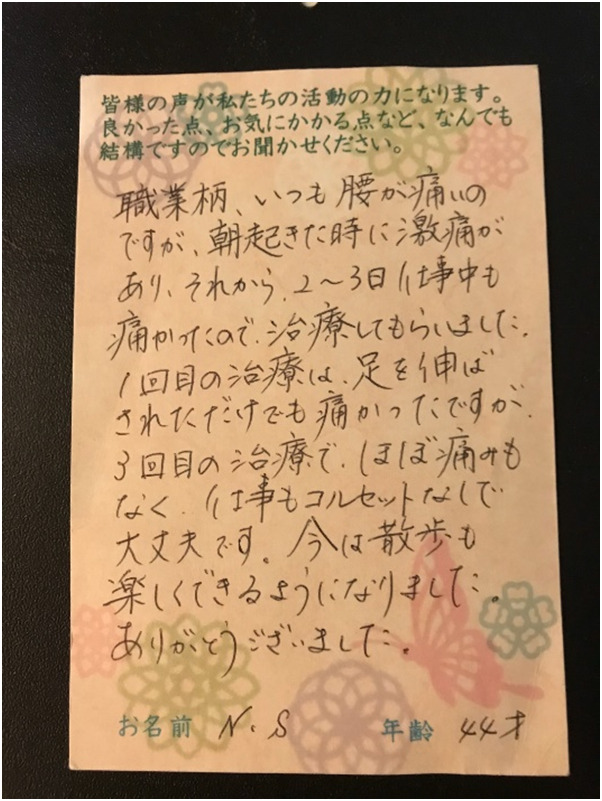 皆様の声が私たちの活動の力になります。
良かった点、お気にかかる点など、なんでも
結構ですのでお聞かせください。
職業柄、いつも腰が痛いの
ですが、朝起きた時に激痛が
あり、それから、2〜3日仕事中も
痛かったので、治療してもらいました。
1回目の治療は、足を伸ば
されただけでも痛かったですが、
3回目の治療で、ほぼ痛みも
なく、仕事もコルセットなしで
大丈夫です。今は散歩も
楽しくできるようになりました。
ありがとうございました。
お名前 N.S 年齢 44才